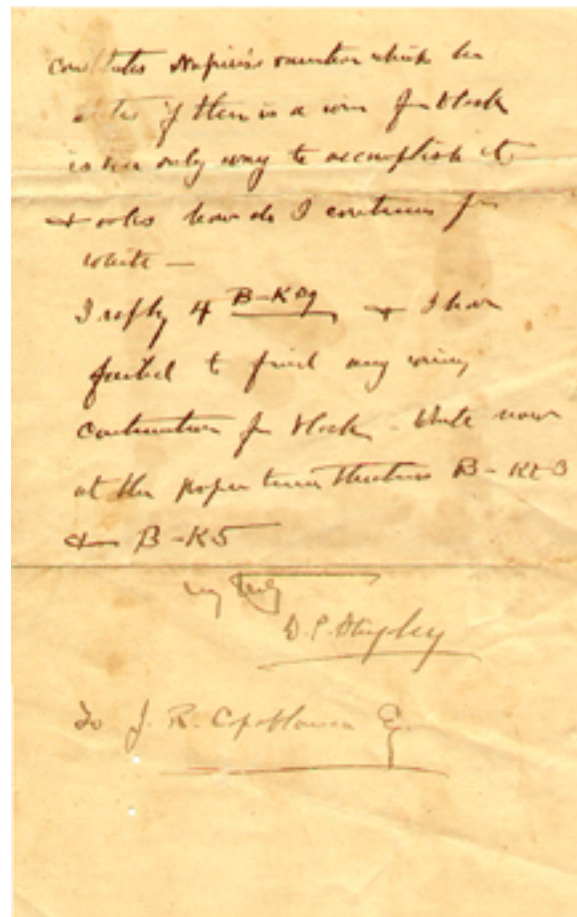 Napier's variation which he
if there is a win for black
is the only way to accomplish it
& asks how do I continue for
white —
I reply 4 B-K sq & I have
failed to find any winning
continuation for black. White now
at the proper time threatens B-Kt3
& B-K5
D. P.
To J. R. Capablanca Esq.